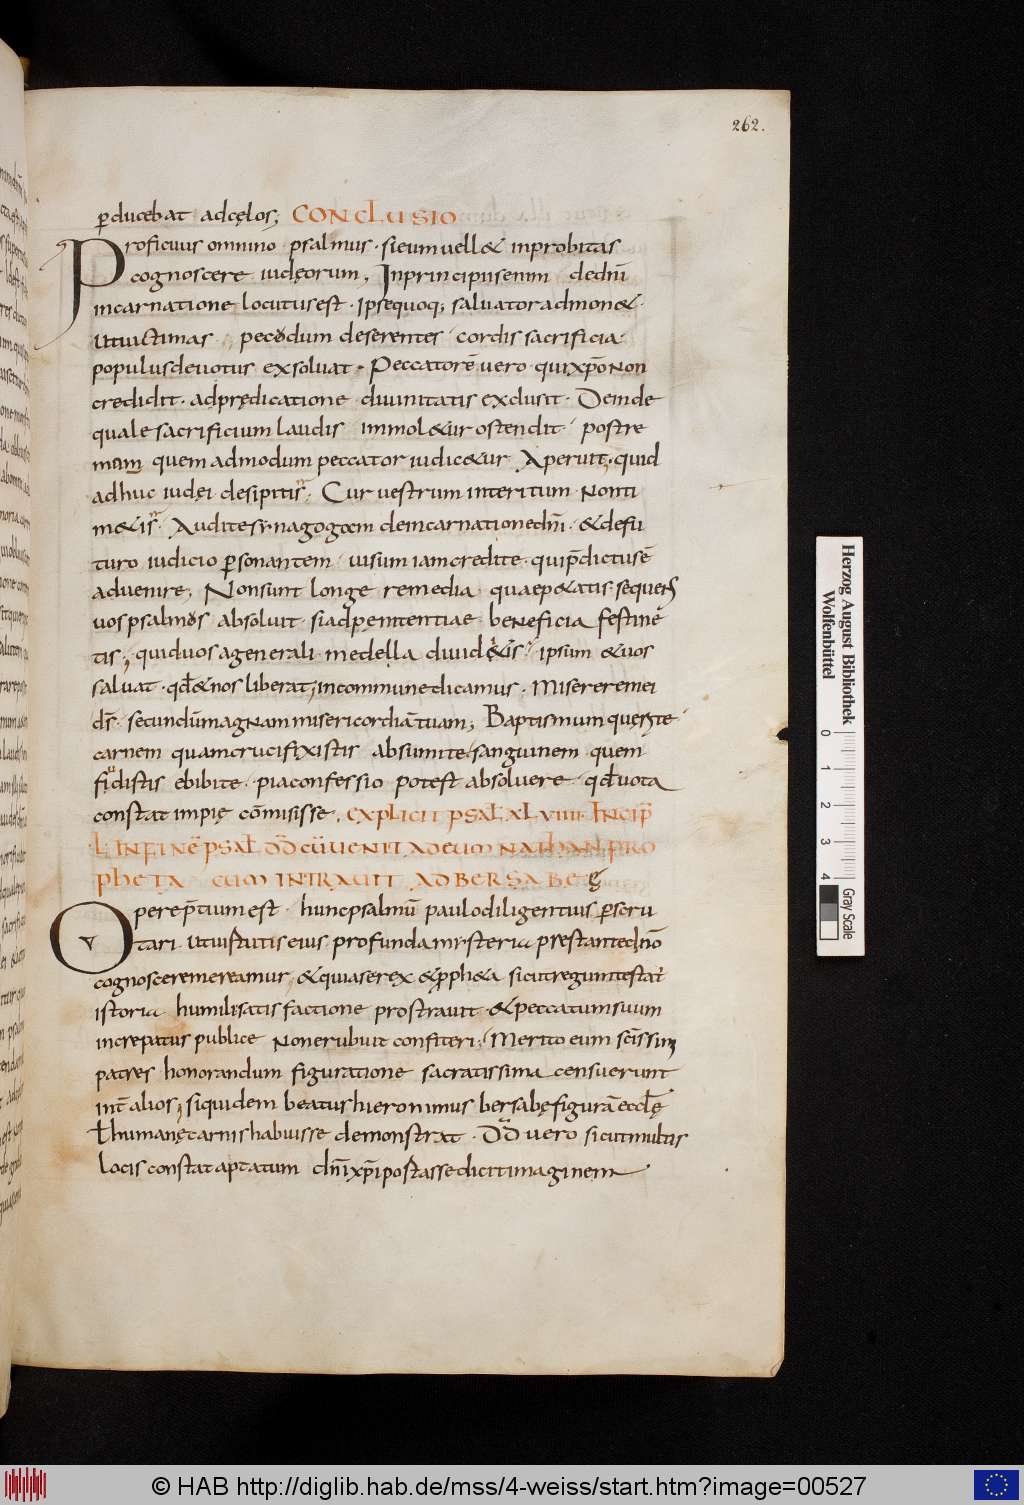 262.
ꝑducebat adcęlos; CONCLUSIO
Proficuus omnino psalmus · sieum uell& inprobitas
cognoscere iudęorum, Inprincipiisenim dedn̄i
incarnatione locutusest · ipsequoq; saluator admon& ·
utuictimas pecodum deserentes cordis sacrificia ·
populus deuotus exsoluat · Peccatorē uero · quixp̄o non
credidit · adprędicatione diuinitatis exclusit · Deinde
quale sacrificium laudis immol&ur ostendit · postre
mum quem admodum peccator iudic&ur Aperuit · quid
adhuc iudęi desipitis · Cur uestrum interitum · Nonti
m&is · Audite synagogam deincarnatione dn̄i · &defu
turo iudicio ꝑsonantem uisum iamcredite · quip̄dictusē
aduenire, Nonsunt longe remedia quaep&atis · sequens
uos psalmus absoluit · siadpęnitentiae beneficia festine
tis, quiduos agenerali medella diuid&is · ipsum &uos
saluat · qd̄&nos liberat, incommune dicamus · Misereremei
ds̄ · secundūmagnam misericordiātuam; Baptismum quęrite
carnem quam crucifixistis absumite, sanguinem quem
fudistis ebibite · piaconfessio potest absoluere · qd̄uota
constat impię cōmisisse. explicit psal̄ xlviiii · Incip̄
L INFINĒ psal̄ DD cūuenit adeum Nathan pro
pheta cum INTRAUIT ADBERSABEE
Operep̄tium est · huncpsalmū paulodiligentius ꝑscru
tari utuirtutis eius profunda mysteria prestantedn̄o
cognosceremereamur, &quiaserex &ꝓph&a sicutreguntestat'
istoria humilisatisfactione prostrauit · &peccatum suum
increpatus publice nonerubuit confiteri; Merito eum sc̄issimi
patres honorandum figuratione sacratissima censuerunt
int̄ alios; siquidem beatus hieronimus bersabę figurā eccl̄ę
ł humanę carnis habuisse demonstrat · DD uero sicutmultis
locis constat aptatum dn̄i xp̄i postassedicit imaginem
Herzog August Bibliothek
Wolfenbüttel
0 1 2 3 4
Gray Scale
© HAB http://diglib.hab.de/mss/4-weiss/start.htm?image=00527